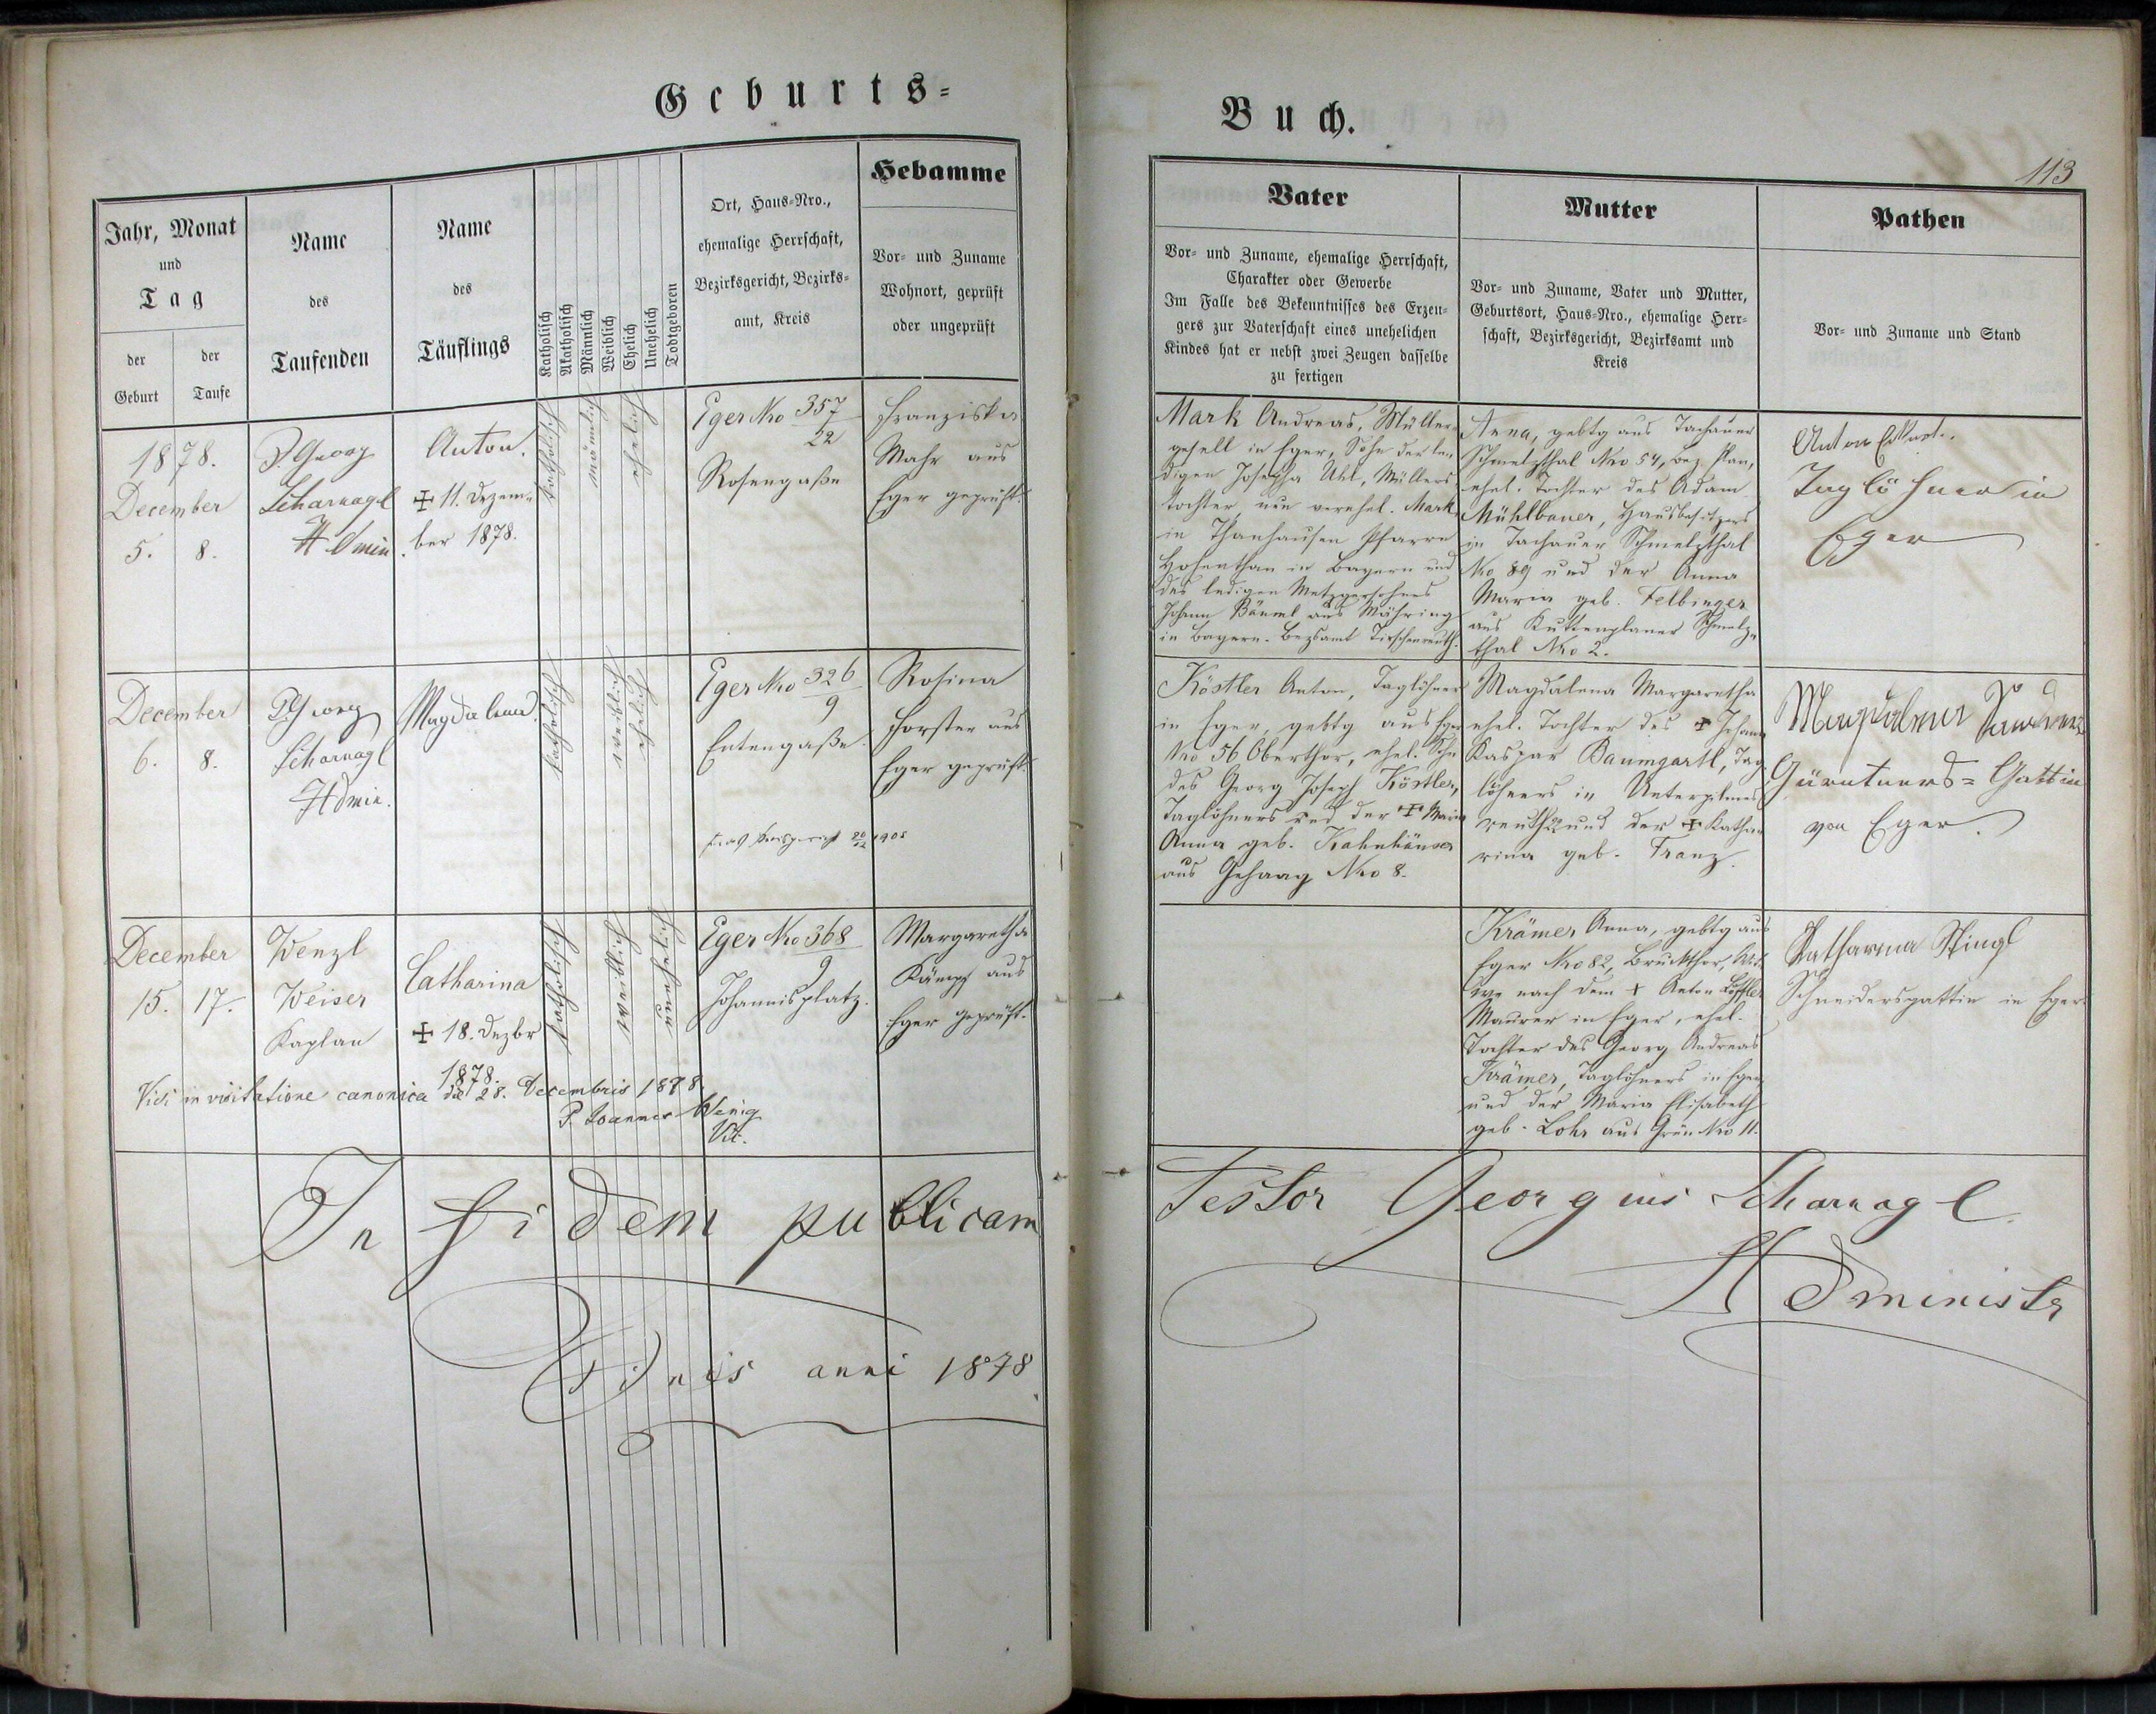 Geburts-
Buch.
113
Jahr, Monat
und
Tag
der
Geburt
der
Taufe
Name
des
Taufenden
Name
des
Täuflings
Katholisch
Akatholisch
Männlich
Weiblich
Ehelich
Unehelich
Todtgeboren
Ort, Haus-Nro.,
ehemalige Herrschaft,
Bezirksgericht, Bezirks-
amt, Kreis
Hebamme
Vor- und Zuname
Wohnort, geprüft
oder ungeprüft
Vater
Vor- und Zuname, ehemalige Herrschaft,
Charakter oder Gewerbe
Im Falle des Bekenntnisses des Erzeu-
gers zur Vaterschaft eines unehelichen
Kindes hat er nebst zwei Zeugen dasselbe
zu fertigen
Mutter
Vor- und Zuname, Vater und Mutter,
Geburtsort, Haus-Nro., ehemalige Herr-
schaft, Bezirksgericht, Bezirksamt und
Kreis
Pathen
Vor- und Zuname und Stand
1878.
December
5. 8.
P. Georg
Scharnagl
Admin.
Anton.
✝ 11. Dezem-
ber 1878.
katholisch
männlich
ehelich
Eger Nro 357
22
Rosengaße
Franziska
Mahr aus
Eger geprüft.
Mark Andreas, Müller-
gesell in Eger, Sohn der le-
digen Josepha Uhl, Müllers
tochter, nun verehel. Mark,
in Thanhausen Pfarre
Hohenthan in Bayern und
des ledigen Metzgersohnes
Johann Bäuml aus Mähring
in Bayern. Bezsamt Tirschenreuth.
Anna, gebtg aus Tachauer
Schmelzthal Nro 54, Bez. Plan,
ehel. Tochter des Adam
Mühlbauer, Hausbesitzers
in Tachauer Schmelzthal
Nro 89 und der Anna
Maria geb. Felbinger
aus Kuttenplaner Schmelz-
thal Nro 2.
Anton
Taglöhner in
Eger
December
6. 8.
P. Georg
Scharnagl
Admin.
Magdalena.
katholisch
weiblich
ehelich
Eger Nro 326
9
Entengaße.
1905
Rosina
Forster aus
Eger geprüft.
Köstler Anton, Taglöhner
in Eger, gebtg aus Eger
Nro 56 Oberthor, ehel. Sohn
des Georg Joseph Köstler,
Taglöhners und der ✝ Maria
Anna geb. Kahnhäuser
aus Gehaag Nro 8.
Magdalena Margaretha
ehel. Tochter des ✝ Johann
Kaspar Baumgartl, Tag-
löhners in Unterpilmers
reuth und der ✝ Katha-
rina geb. Franz.
Magdalena
Gärtners-Gattin
von Eger.
December
15. 17.
Wenzl
Weiser
Kaplan
Catharina
✝ 18. Dezbr
1878.
katholisch
weiblich
unehelich
Eger Nro 368
9
Johannisplatz.
Margaretha
Kämpf aus
Eger geprüft.
Krämer Anna, gebtg aus
Eger Nro 82, Bruckthor, Wit-
we nach dem ✝ Anton Löffler
Maurer in Eger, ehel.
Tochter des Georg Andreas
Krämer, Taglöhners in Eger
und der Maria Elisabeth
geb. Lohr aus Grün Nro 11.
Katharina Stingl
Schneidersgattin in Eger
Vidi in visitatione canonica die 28. Decembris 1878.
P. Joannes Wenig
Vic.
In fidem publicam
Testor Georgius Scharnagl.
Administr
Finis anni 1878.